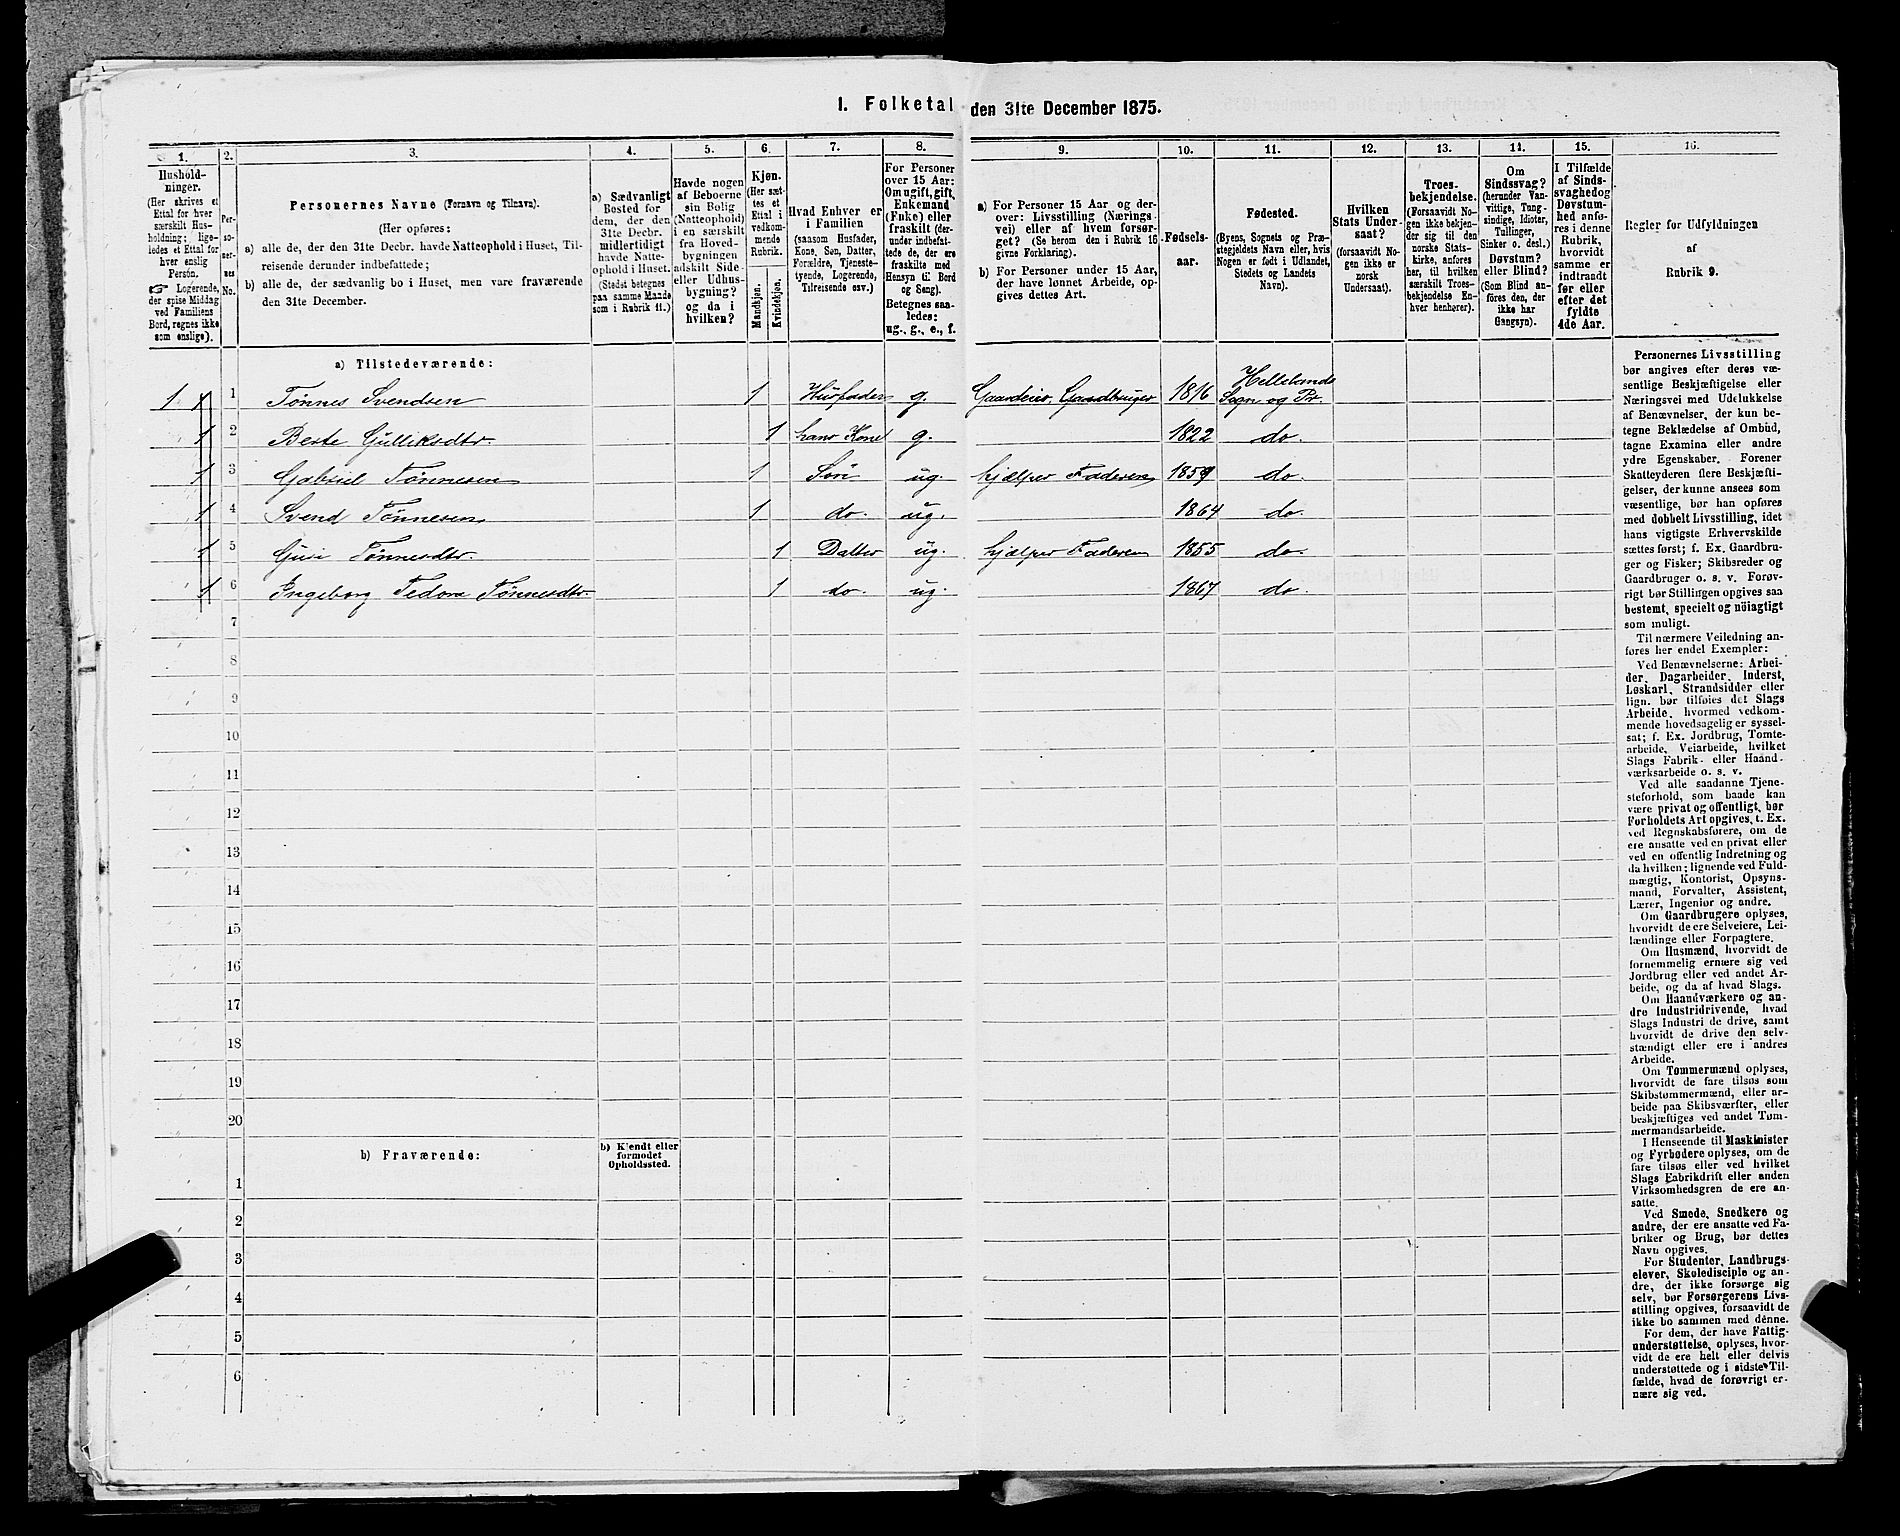 I. Folketal den 31te December 1875.
1. 2. 3. 4. 5. 6. 7. 8. 9. 10. 11. 12. 13. 14. 15. 16.
Hushold-
ninger.
(Her skrives et
Ettal for hver
særskilt Hus-
holdning; lige-
ledes et Ettal for
hver enslig
Person.
☞ Logerende,
der spise Middag
ved Familiens
Bord, regnes ikke
som enslige).
Per-
so-
ner-
nes
No.
Personernes Navne (Fornavn og Tilnavn).
(Her opføres:
a) alle de, der den 31te Decbr. havde Natteophold i Huset, Til-
reisende derunder indbefattede;
b) alle de, der sædvanlig bo i Huset, men vare fraværende
den 31te December.
a) Sædvanligt
Bosted for
dem, der den
31te Decbr.
midlertidigt
havde Natte-
ophold i Huset.
(Stedet betegnes
paa samme Maade
som i Rubrik 11.)
Havde nogen
af Beboerne
sin Bolig
(Natteophold)
i en særskilt
fra Hoved-
bygningen
adskilt Side-
eller Udhus-
bygning?
og da i
hvilken?
Kjøn.
(Her sæt-
tes et
Ettal i
vedkom-
mende
Rubrik.
Mandkjøn.
Kvindekjøn.
Hvad Enhver er
i Familien
(saasom Husfader,
Kone, Søn, Datter,
Forældre, Tjeneste-
tyende, Logerende,
Tilreisende osv.)
For Personer
over 15 Aar:
Om ugift, gift,
Enkemand
(Enke) eller
fraskilt (der-
under indbefat-
tede de, der ere
fraskilte med
Hensyn til Bord
og Seng).
Betegnes saa-
ledes:
ug., g., e., f.
a) For Personer 15 Aar og der-
over: Livsstilling (Nærings-
vei) eller af hvem forsør-
get? (Se herom den i Rubrik 16
givne Forklaring).
b) For Personer under 15 Aar,
der have lønnet Arbeide, op-
gives dettes Art.
Fødsels-
aar.
Fødested.
(Byens, Sognets og Præ-
stegjeldets Navn eller, hvis
Nogen er født i Udlandet,
Stedets og Landets
Navn).
Hvilken
Stats Under-
saat?
(forsaavidt No-
gen ikke er
norsk
Undersaat).
Troes-
bekjendelse.
(Forsaavidt No-
gen ikke bekjen-
der sig til den
norske Stats-
kirke, anføres
her, til hvilken
særskilt Troes-
bekjendelse En-
hver henhører).
Om
Sindssvag?
(herunder Van-
vittige, Tung-
sindige, Idioter,
Tullinger,
Sinker o. desl.)
Døvstum?
eller Blind?
(Som Blind an-
føres den, der
ikke har
Gangsyn).
I Tilfælde
af Sinds-
svaghed og
Døvstum-
hed anfø-
res i denne
Rubrik,
hvorvidt
samme er
indtraadt
før eller
efter det
fyldte
4de Aar.
Regler for Udfyldningen
af
Rubrik 9.
a) Tilstedeværende:
1 1 1 Tønnes Svendsen 1 Husfader g. Gaardeier, Gaardbruger 1816 Hellelands Sogn og Pr.
1 2 Berte Gulliksdtr. 1 hans Kone g. 1822 do.
1 3 Gabriel Tønnesen 1 Søn ug. hjælper Faderen 1859 do.
1 4 Svend Tønnesen 1 do. ug. 1864 do.
1 5 Gusi Tønnesdtr. 1 Datter ug. hjælper Faderen 1855 do.
1 6 Ingeborg Tedora Tønnesdtr. 1 do. ug. 1867 do.
7
8
9
10
11
12
13
14
15
16
17
18
19
20
b) Fraværende:
b) Kjendt eller
formodet
Opholdssted.
1
2
3
4
5
6
Personernes Livsstilling
bør angives efter deres væ-
sentlige Beskjæftigelse eller
Næringsvei med Udelukkelse
af Benævnelser, der kun be-
tegne Beklædelse af Ombud,
tagne Examina eller andre
ydre Egenskaber. Forener
Skatteyderen flere Beskjæfti-
gelser, der kunne ansees som
væsentlige, bør han opføres
med dobbelt Livsstilling, idet
hans vigtigste Erhvervskilde
sættes først; f. Ex. Gaardbru-
ger og Fisker; Skibsreder og
Gaardbruger o. s. v. Forøv-
rigt bør Stillingen opgives saa
bestemt, specielt og nøiagtigt
som muligt.
Til nærmere Veiledning an-
føres her endel Exempler:
Ved Benævnelserne: Arbei-
der, Dagarbeider, Inderst,
Løskarl, Strandsidder eller
lign. bør tilføies det Slags
Arbeide, hvormed vedkom-
mende hovedsagelig er syssel-
sat; f. Ex. Jordbrug, Tomte-
arbeide, Veiarbeide, hvilket
Slags Fabrik- eller Haand-
værksarbeide o. s. v.
Ved alle saadanne Tjene-
steforhold, som baade kan
være privat og offentligt, bør
Forholdets Art opgives, t. Ex.
ved Regnskabsførere, om de
ere ansatte ved en privat eller
ved en offentlig Indretning og
da hvilken; lignende ved Fuld-
mægtig, Kontorist, Opsyns-
mand, Forvalter, Assistent,
Lærer, Ingeniør og andre.
Om Gaardbrugere oplyses,
hvorvidt de ere Selveiere, Lei-
lændinge eller Forpagtere.
Om Husmænd, hvorvidt de
fornemmelig ernære sig ved
Jordbrug eller ved andet Ar-
beide, og da af hvad Slags.
Om Haandværkere og an-
dre Industridrivende, hvad
Slags Industri de drive, samt
hvorvidt de drive den selv-
stændigt eller ere i andres
Arbeide.
Om Tømmermænd oplyses,
hvorvidt de fare tilsøs som
Skibstømmermænd, eller ar-
beide paa Skibsværfter, eller
beskjæftiges ved andet Tøm-
mermandsarbeide.
I Henseende til Maskinister
og Fyrbødere oplyses, om de
fare tilsøs eller ved hvilket
Slags Fabrikdrift eller anden
Virksomhedsgren de ere an-
satte.
Ved Smede, Snedkere og
andre, der ere ansatte ved Fa-
briker og Brug, bør dettes
Navn opgives.
For Studenter, Landbrugs-
elever, Skoledisciple og an-
dre, der ikke forsørge sig
selv, bør Forsørgerens Livs-
stilling opgives, forsaavidt de
ikke bo sammen med denne.
For dem, der have Fattig-
understøttelse, oplyses, hvor-
vidt de ere helt eller delvis
understøttede og i sidste Til-
fælde, hvad de forøvrigt er-
nære sig ved.